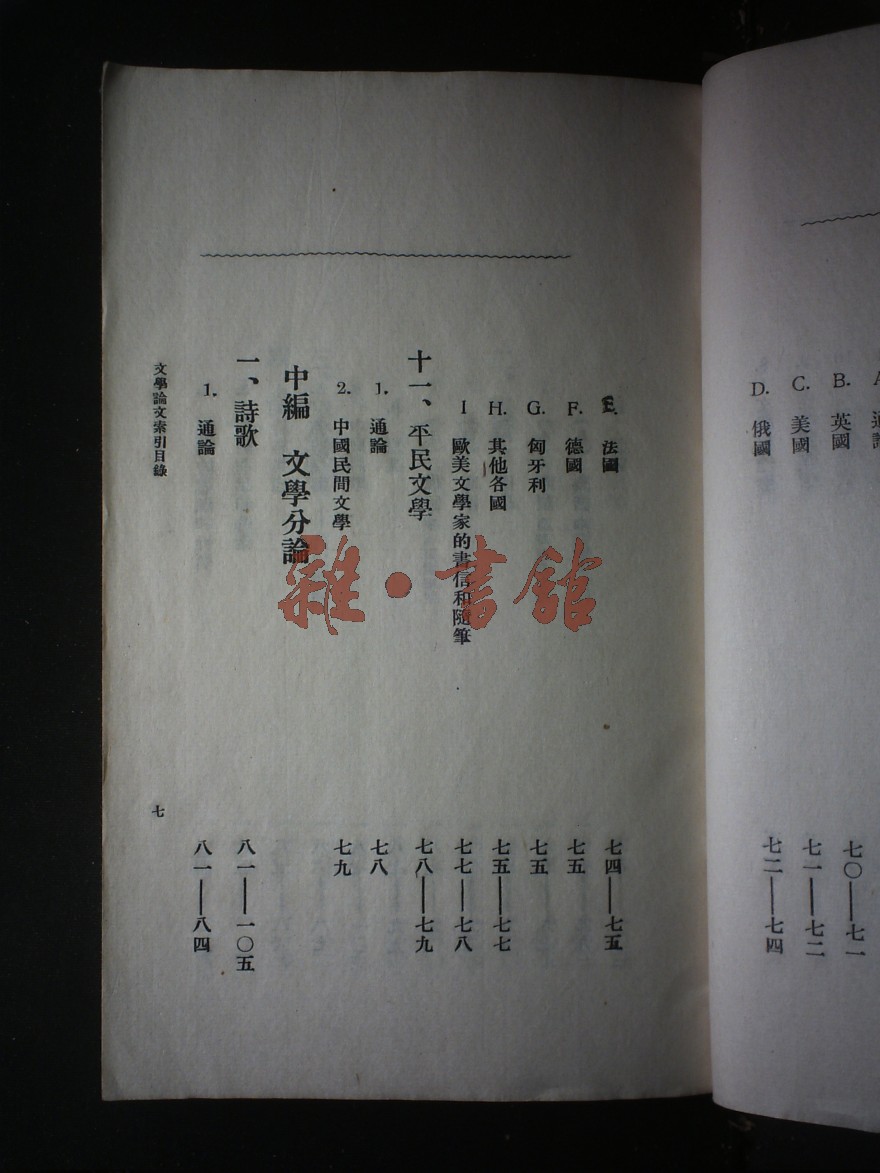 B. 英國 七〇——七一
C. 美國 七一——七二
D. 俄國 七二——七四
E. 法國 七四——七五
F. 德國 七五
G. 匈牙利 七五
H. 其他各國 七五——七七
I 歐美文學家的書信和隨筆 七七——七八
十一、平民文學 七八——七九
1. 通論 七八
2. 中國民間文學 七九
中編 文學分論
一、詩歌 八一——一〇五
1. 通論 八一——八四
文學論文索引目錄 七
雜·書館